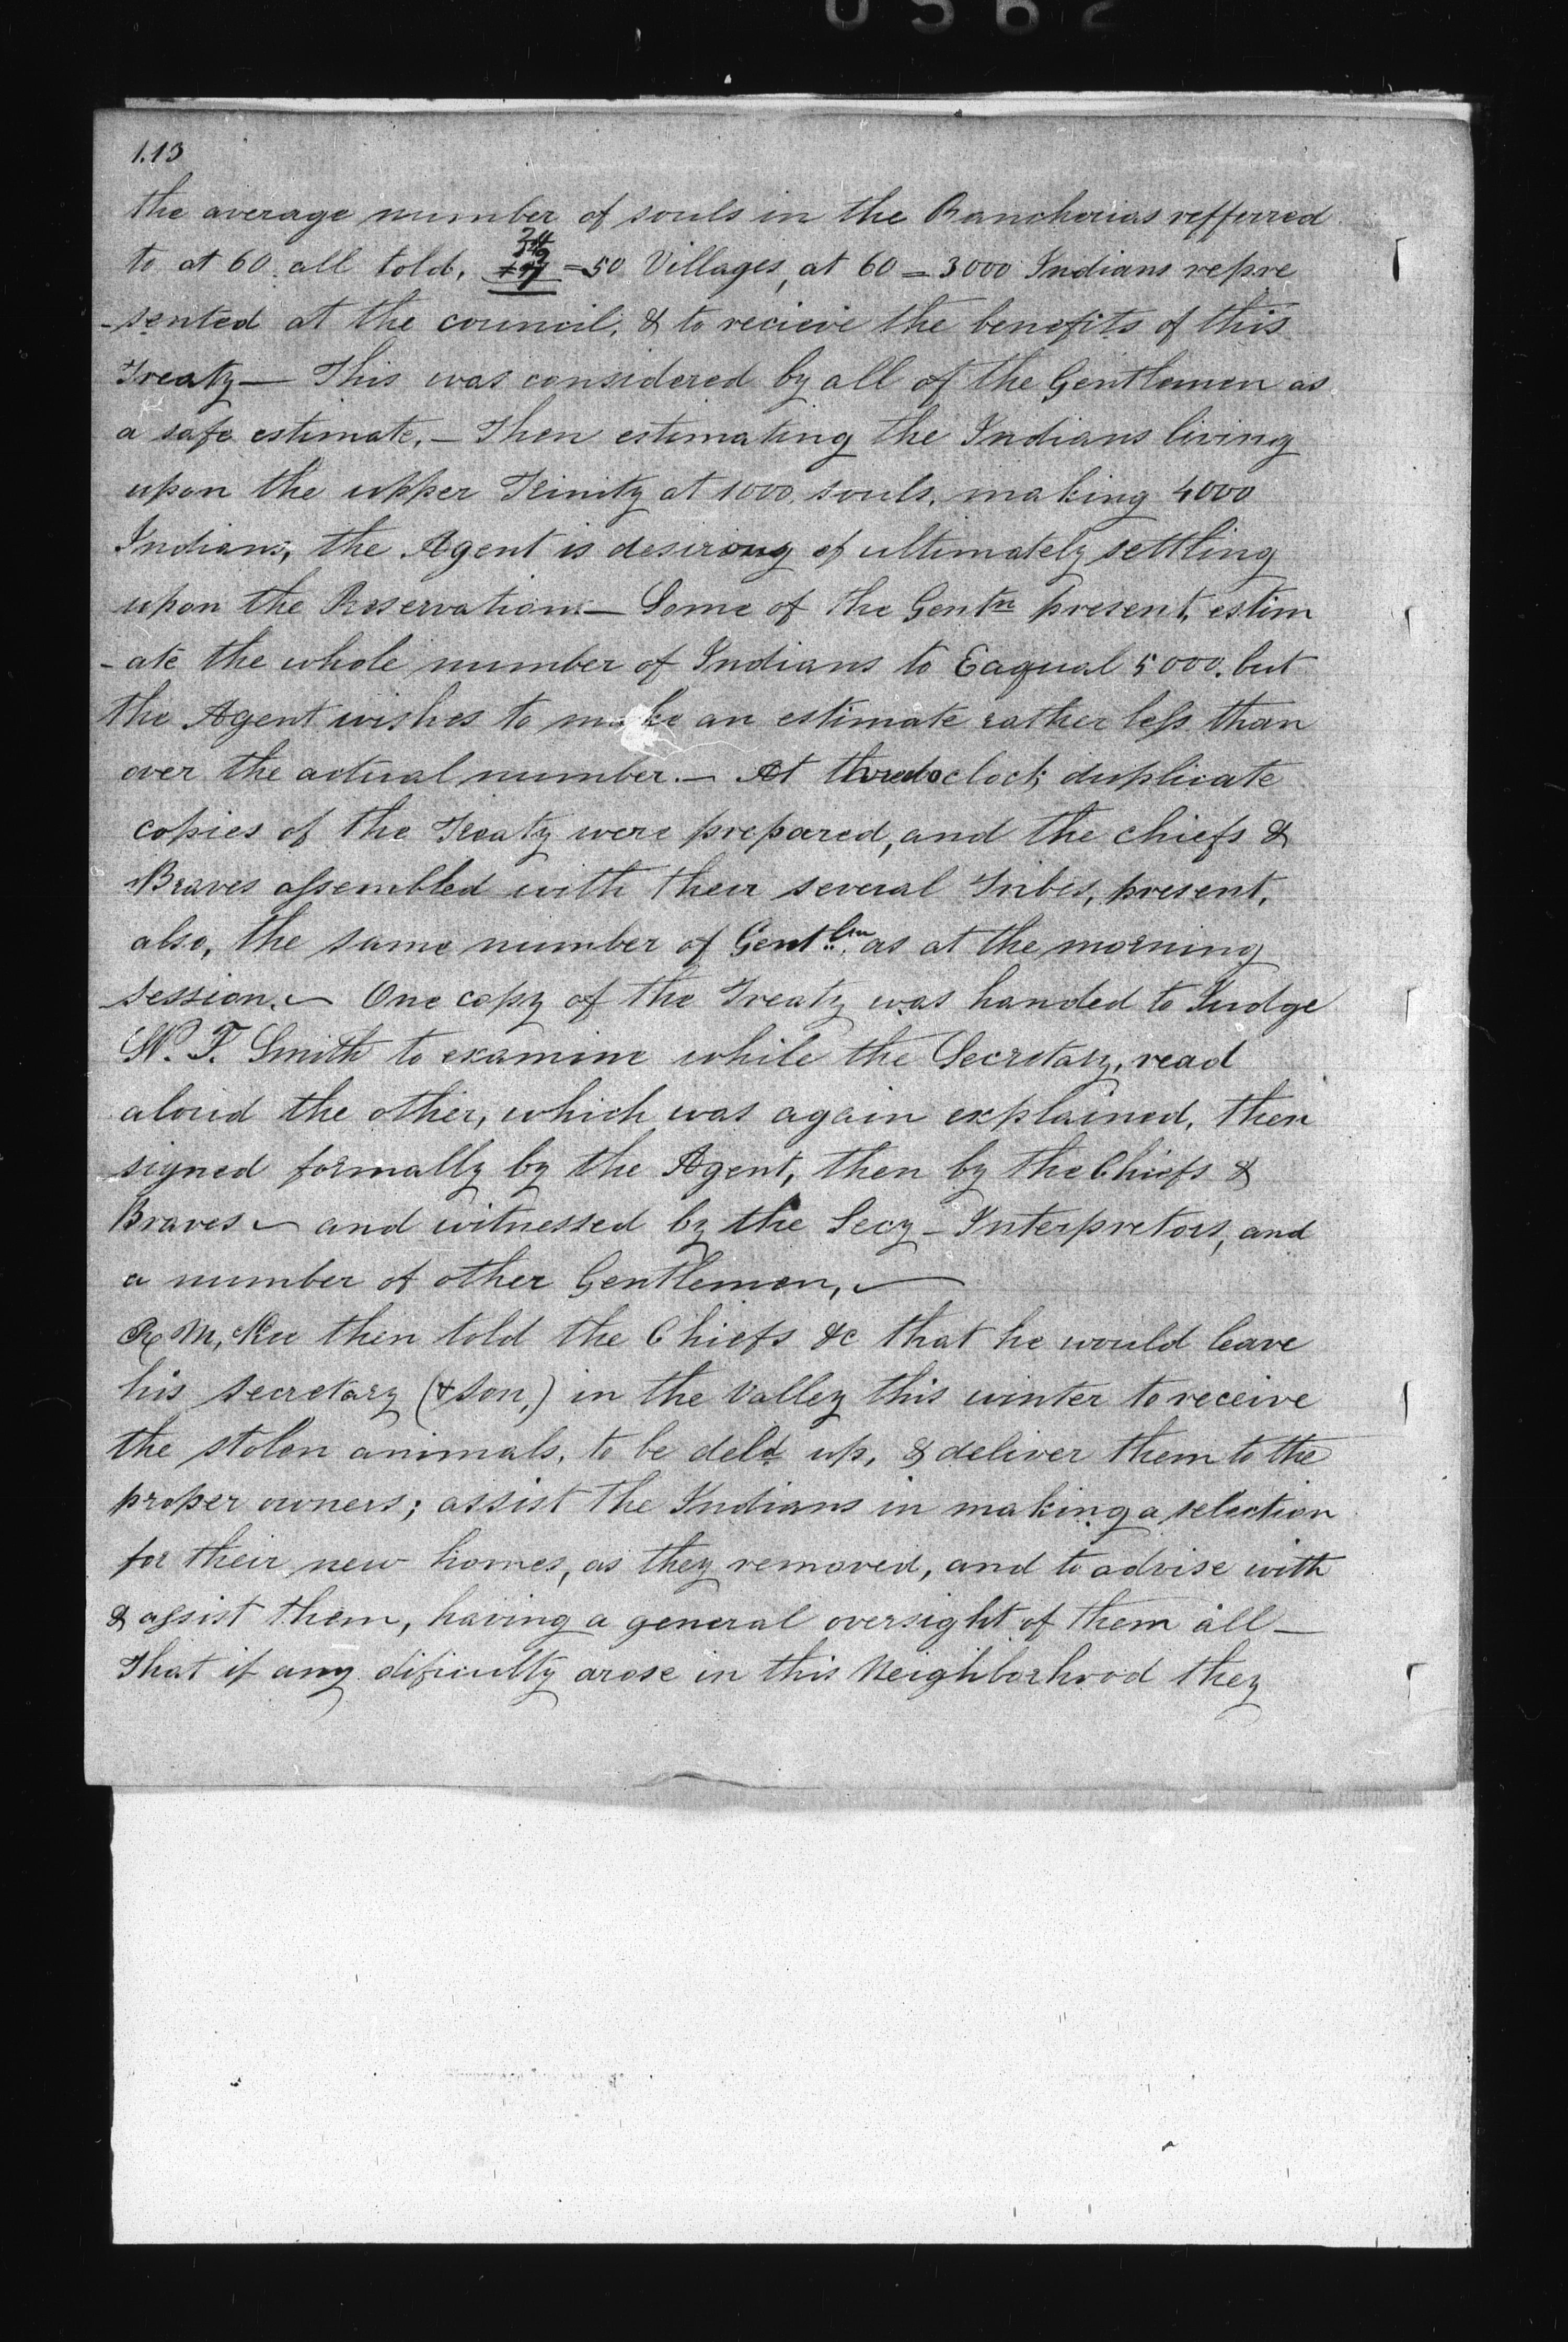 113
the average number of souls in the Rancherias refferred
to at 60 all told, = 50 Villages, at 60 = 3000 Indians repre
-sented at the council, & to recieve the benefits of this
Treaty — This was considered by all of the Gentlemen as
a safe estimate. — Then estimating the Indians living
upon the upper Trinity at 1000. souls, making 4000
Indians, the Agent is desirous of ultimately settling
upon the Reservation — Some of the Gentn present, estim
-ate the whole number of Indians to Eaqual 5000. but
the Agent wishes to make an estimate rather less than
over the actual number. — At oclock duplicate
copies of the Treaty were prepared, and the chiefs &
Braves assembled with their several Tribes, present,
also, the same number of Gentlm as at the morning
session. — One copy of the Treaty was handed to Judge
W. T. Smith to examine while the Secretary, read
aloud the other, which was again explained, then
signed formally by the Agent, then by the Chiefs &
Braves — and witnessed by the Secy - Interpretors, and
a number of other Gentlemen, —
R M, Kee then told the Chiefs &c that he would leave
his secretary (& son,) in the Valley this winter to receive
the stolen animals, to be deld up, & deliver them to the
proper owners; assist the Indians in making a selection
for their new homes, as they removed, and to advise with
& assist them, having a general oversight of them all —
That if any dificulty arose in this Neighborhood they